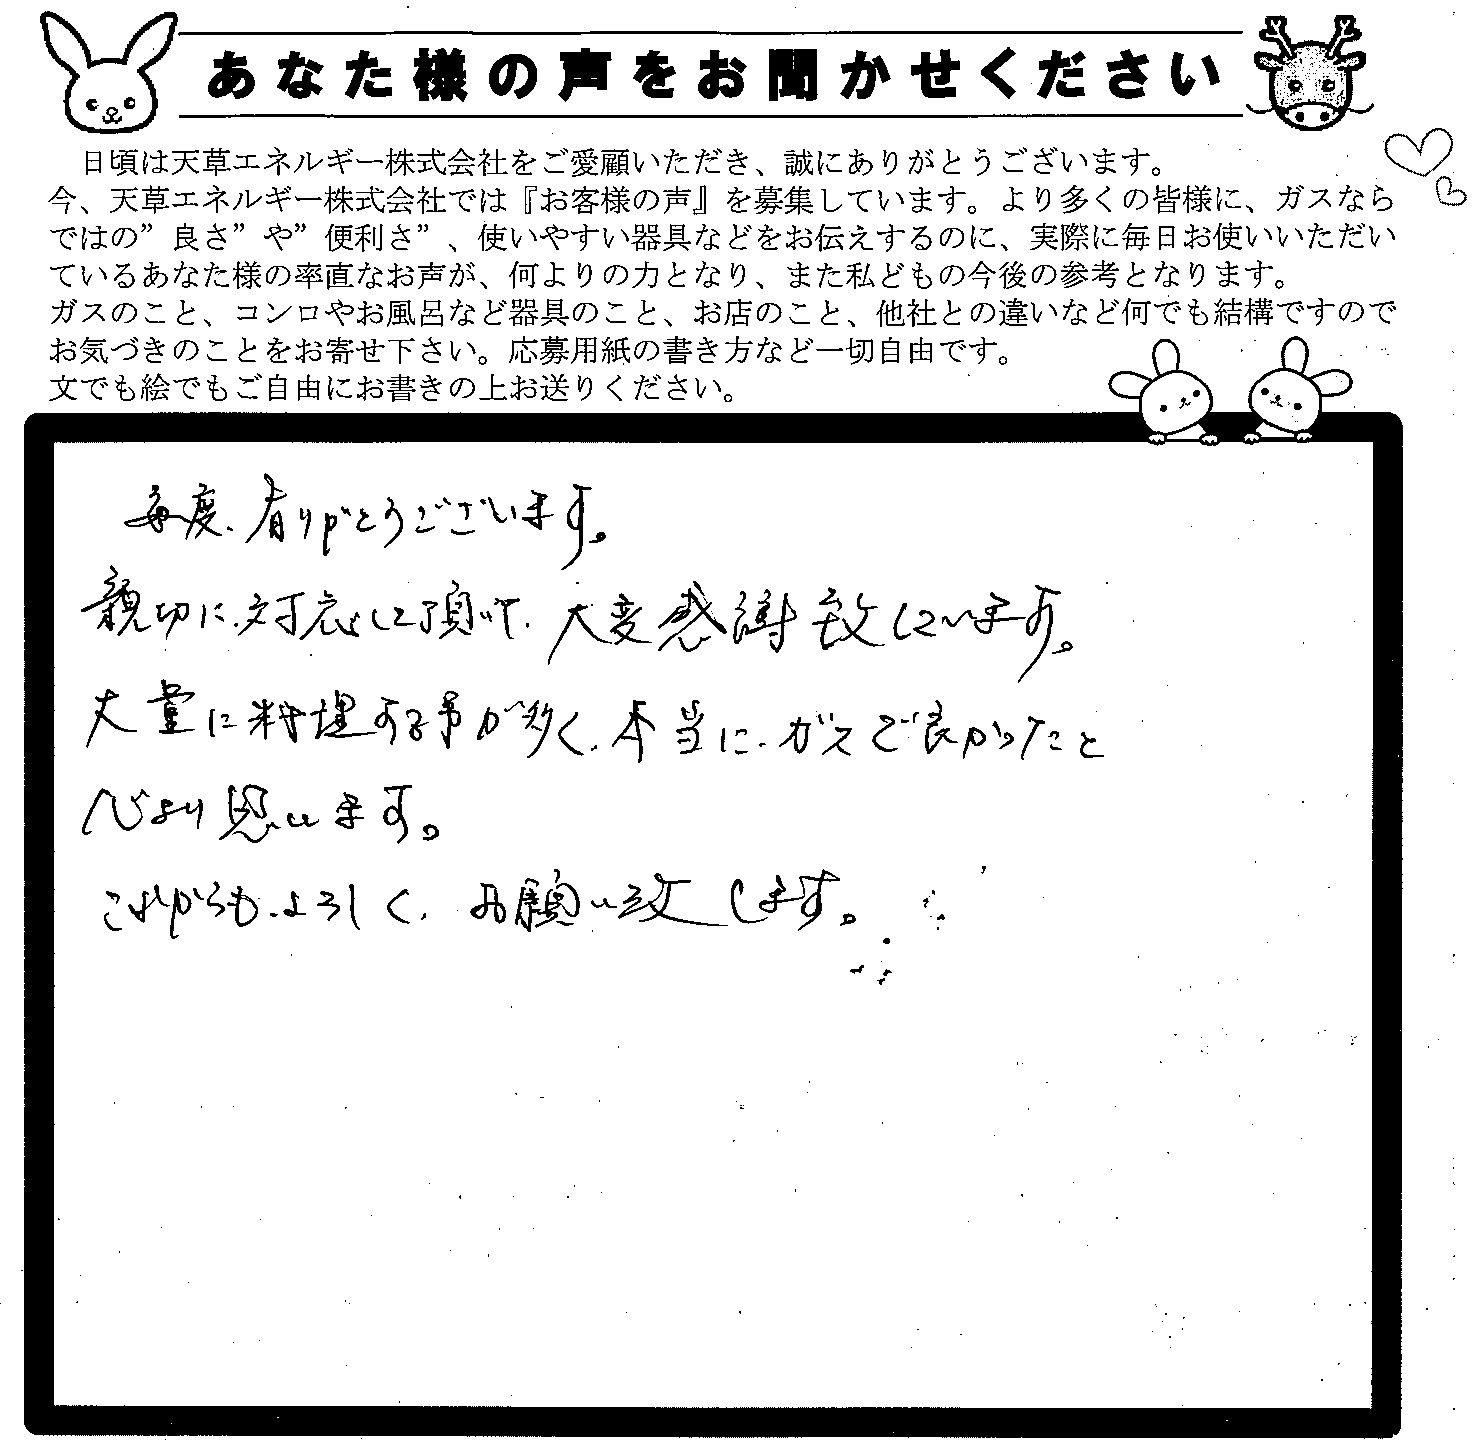 あなた様の声をお聞かせください
日頃は天草エネルギー株式会社をご愛顧いただき、誠にありがとうございます。
今、天草エネルギー株式会社では『お客様の声』を募集しています。より多くの皆様に、ガスなら
ではの”良さ”や”便利さ”、使いやすい器具などをお伝えするのに、実際に毎日お使いいただい
ているあなた様の率直なお声が、何よりの力となり、また私どもの今後の参考となります。
ガスのこと、コンロやお風呂など器具のこと、お店のこと、他社との違いなど何でも結構ですので
お気づきのことをお寄せ下さい。応募用紙の書き方など一切自由です。
文でも絵でもご自由にお書きの上お送りください。
毎度、有りがとうございます。
親切に、対応して頂いて、大変感謝致しています。
大量に料理する事が多く、本当に、ガスで良かったこと
心より思います。
これからも、よろしく、お願い致します。